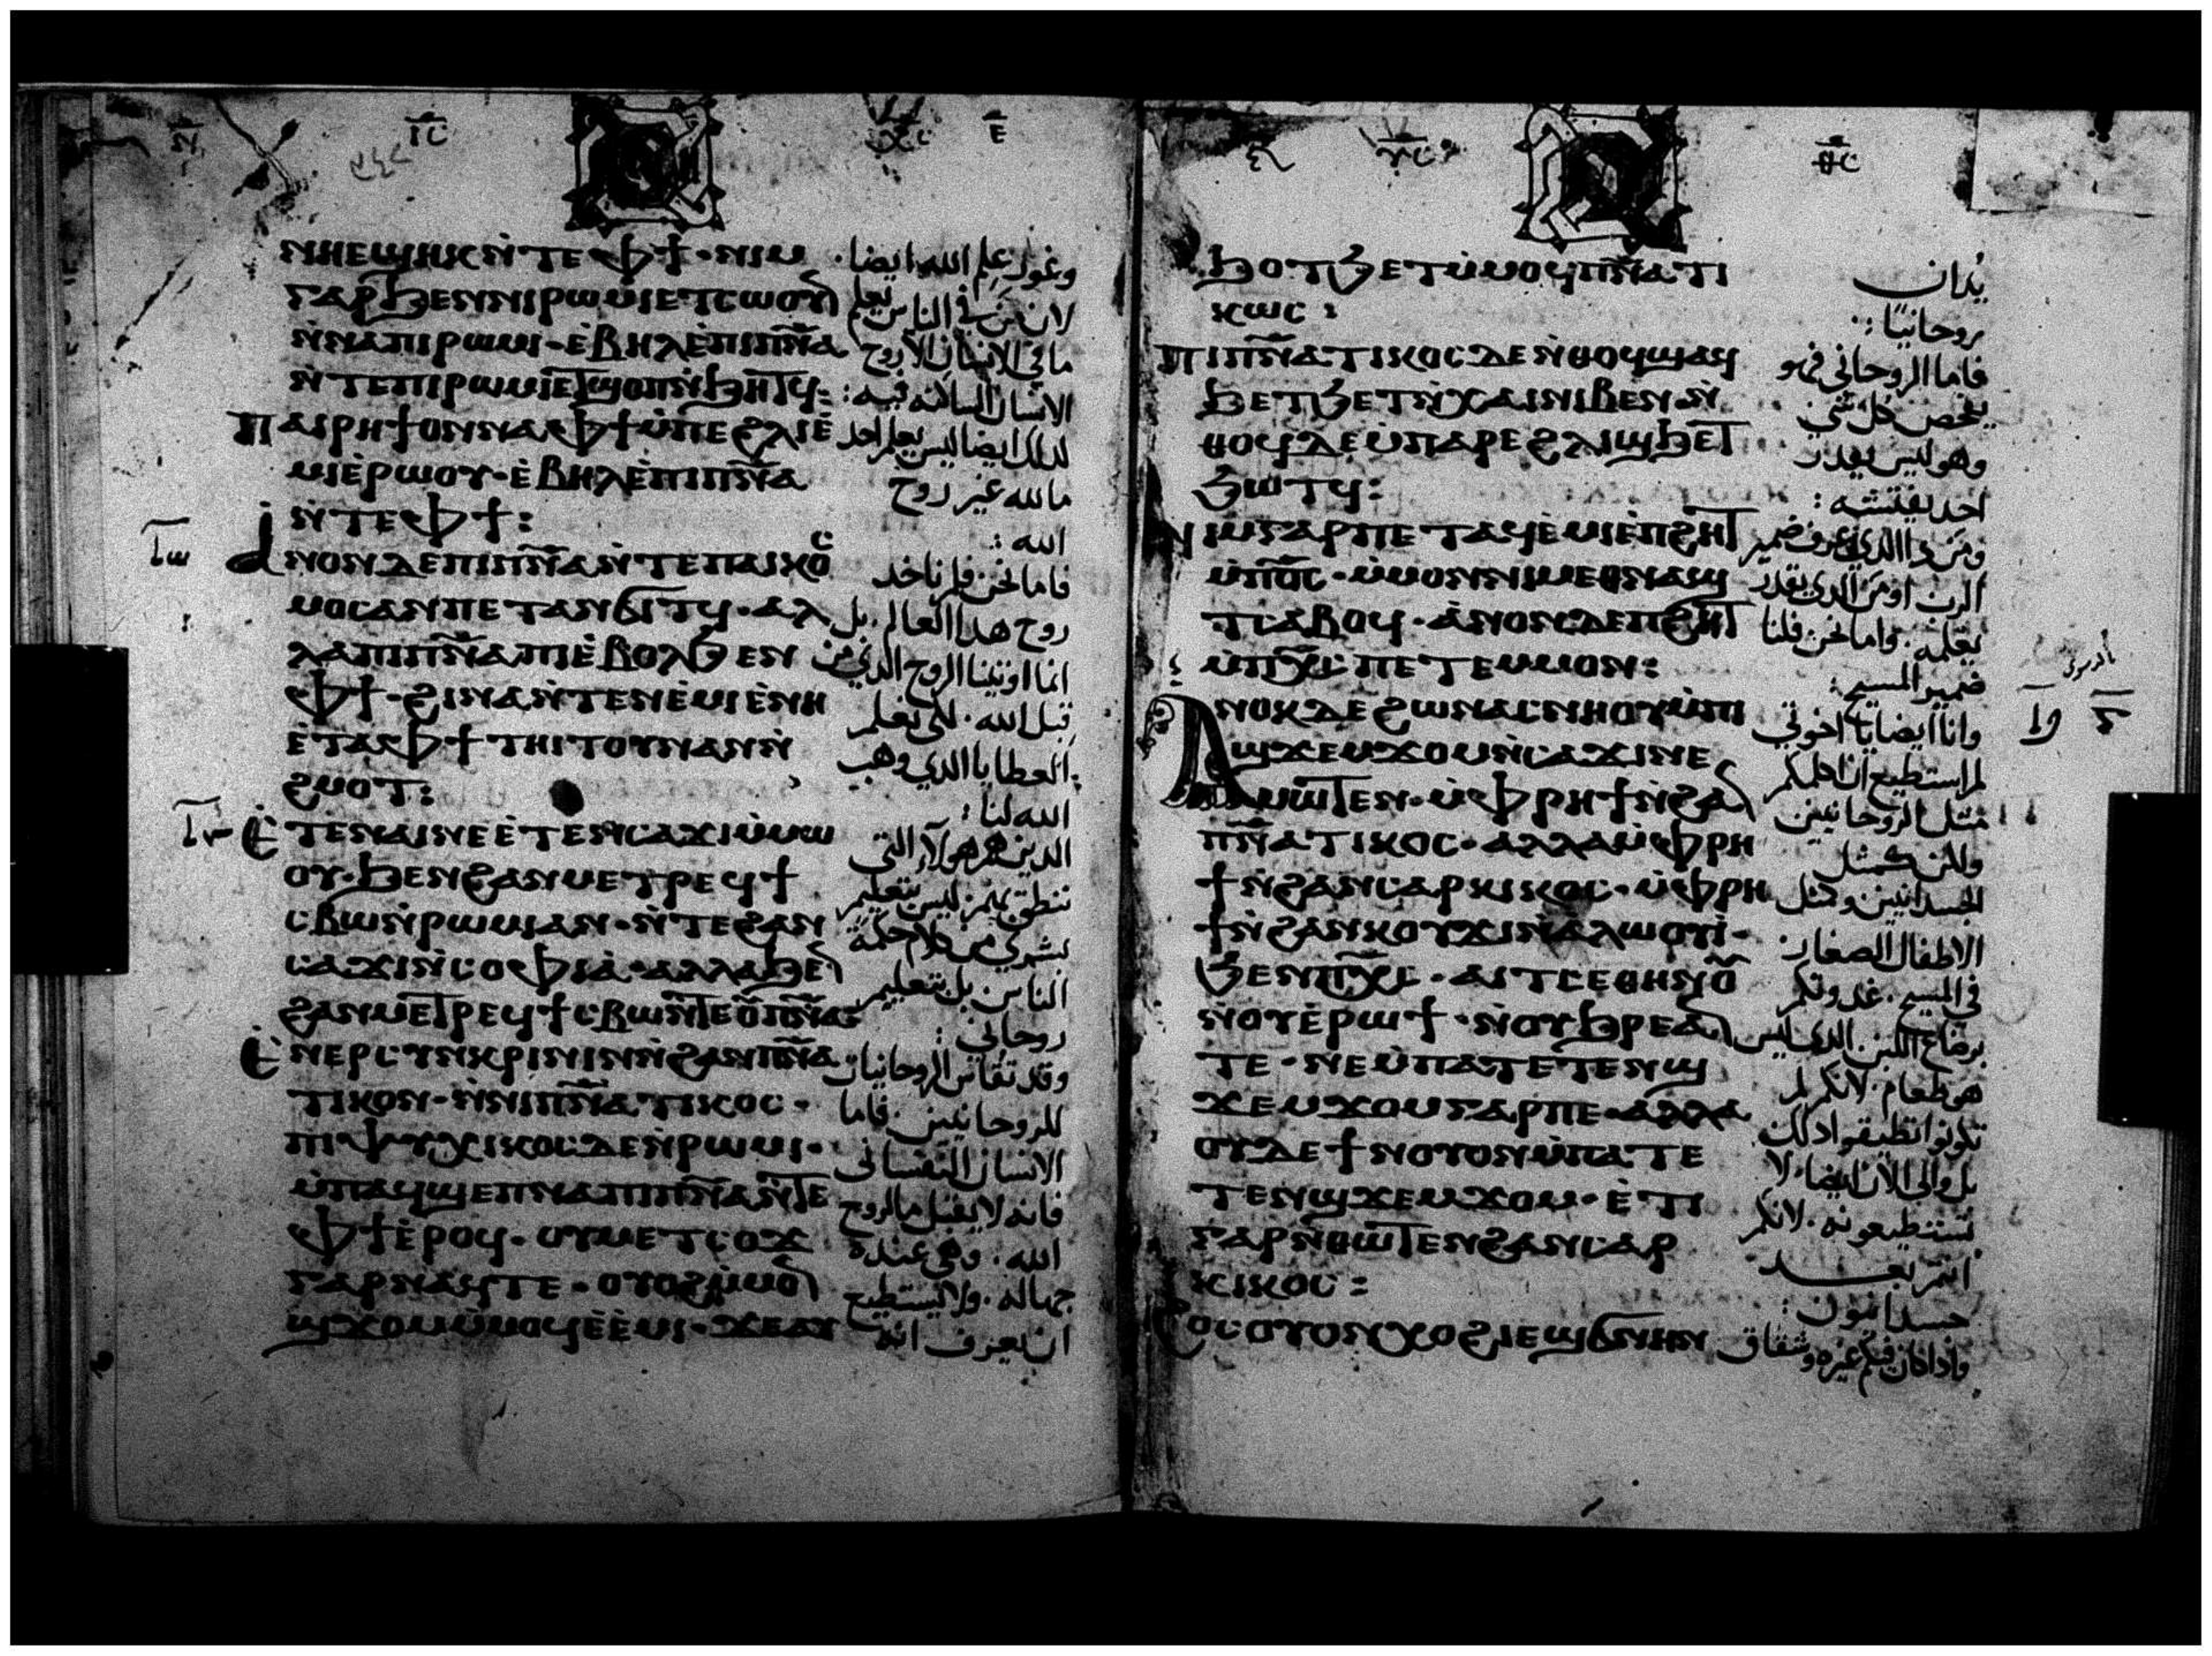 ⲛⲏⲉϣⲏⲕ ⲛ̀ⲧⲉ ⲫϯ · ⲛⲓⲙ
ⲅⲁⲣ ϧⲉⲛ ⲛⲓⲣⲱⲙⲓ ⲉⲧⲥⲱⲟⲩⲛ
ⲛ̀ⲛⲁⲡⲓⲣⲱⲙⲓ · ⲉ̀ⲃⲏⲗ ⲉ̀ⲡⲓⲡ̅ⲛ̅ⲁ̅
ⲛ̀ⲧⲉ ⲡⲓⲣⲱⲙⲓ ⲉⲧϣⲟⲡ ⲛ̀ϧⲏⲧϥ :
ⲡⲁⲓⲣⲏϯ ⲟⲛ ⲛⲁⲫϯ ⲙ̀ⲡⲉ ϩⲗⲓ ⲉ̀
ⲙⲓ ⲉ̀ⲣⲱⲟⲩ · ⲉ̀ⲃⲏⲗ ⲉ̀ⲡⲓⲡ̅ⲛ̅ⲁ̅
ⲛ̀ⲧⲉ ⲫϯ :
ⲁ̀ⲛⲟⲛ ⲇⲉ ⲡⲓⲡ̅ⲛ̅ⲁ̅ ⲛ̀ⲧⲉ ⲡⲁⲓⲕⲟⲥ
ⲙⲟⲥ ⲁⲛ ⲡⲉⲧⲁⲛϭⲓⲧϥ · ⲁⲗ
ⲗⲁ ⲡⲓⲡ̅ⲛ̅ⲁ̅ ⲡⲓⲉ̀ⲃⲟⲗ ϧⲉⲛ
ⲫϯ · ϩⲓⲛⲁ ⲛ̀ⲧⲉⲛⲉ̀ⲙⲓ ⲉ̀ⲛⲏ
ⲉ̀ⲧⲁ ⲫϯ ⲧⲏⲓⲧⲟⲩ ⲛⲁⲛ ⲛ̀
ϩⲙⲟⲧ :
ⲉ̀ⲧⲉ ⲛⲁⲓ ⲛⲉ ⲉ̀ⲧⲉⲛⲥⲁϫⲓ ⲙ̀ⲙⲱ
ⲟⲩ · ϧⲉⲛ ϩⲁⲛⲙⲉⲧⲣⲉϥϯ
ⲥⲃⲱ ⲛ̀ⲣⲱⲙⲓ ⲁⲛ · ⲛ̀ⲧⲉ ϩⲁⲛ
ⲥⲁϫⲓ ⲛ̀ⲥⲟⲫⲓⲁ̀ · ⲁⲗⲗⲁ ϧⲉⲛ
ϩⲁⲛⲙⲉⲧⲣⲉϥϯⲥⲃⲱ ⲛ̀ⲧⲉ ⲟⲩⲡ̅ⲛ̅ⲁ̅ :
ⲉ̀ⲛⲉⲣⲥⲩⲛⲕⲣⲓⲛⲓⲛ ⲛ̀ϩⲁⲛⲡ̅ⲛ̅ⲁ̅
ⲧⲓⲕⲟⲛ · ⲛ̀ⲛⲓⲡ̅ⲛ̅ⲁ̅ⲧⲓⲕⲟⲥ ·
ⲡⲓⲯⲩⲭⲓⲕⲟⲥ ⲇⲉ ⲛ̀ⲣⲱⲙⲓ ·
ⲙ̀ⲡⲁϥϣⲉⲡ ⲛⲁ ⲡⲓⲡ̅ⲛ̅ⲁ̅ ⲛ̀ⲧⲉ
ⲫϯ ⲉ̀ⲣⲟϥ · ⲟⲩⲙⲉⲧⲥⲟϫ
ⲅⲁⲣ ⲛⲁϥ ⲧⲉ · ⲟⲩⲟϩ ⲙ̀ⲙⲟⲛ
ϣϫⲟⲙ ⲙ̀ⲙⲟϥ ⲉ̀ⲉ̀ⲙⲓ · ϫⲉ ⲁⲩ
وغور علم الله ايضا
لان من في الناس يعلم
ما في الانسان الا روح
الانسان الساكنه فيه :
كذلك ايضا ليس يعلم احد
ما لله غير روح
الله :
فاما نحن فلم ناخذ
روح هذا العالم . بل
انما اوتينا الروح الذي من
قبل الله . لكي نعلم
العطايا الذي وهب
الله لنا :
الذين هم هولاء التي
ننطق بهم ليس بتعليم
بشري من كلام حكمة
الناس بل بتعليم
روحاني :
وقد تقاس الروحانيات
للروحانيين . فاما
الانسان النفساني
فانه لا يقبل ما لروح
الله . وهي عنده
جهاله . ولا يستطيع
ان يعرف انه
ϧⲟⲧϧⲉⲧ ⲙ̀ⲙⲟϥ ⲡ̅ⲛ̅ⲁ̅ⲧⲓ
ⲕⲱⲥ :
ⲡⲓⲡ̅ⲛ̅ⲁ̅ⲧⲓⲕⲟⲥ ⲇⲉ ⲛ̀ⲑⲟϥ ϣⲁϥ
ϧⲉⲧϧⲉⲧ ⲛ̀ⲭⲁⲓ ⲛⲓⲃⲉⲛ · ⲛ̀
ⲑⲟϥ ⲇⲉ ⲙ̀ⲡⲁⲣⲉ ϩⲗⲓ ϣϧⲉⲧ
ϧⲱⲧϥ :
ⲛⲓⲙ ⲅⲁⲣ ⲡⲉⲧⲁϥⲉ̀ⲙⲓ ⲉ̀ⲡϩⲏⲧ
ⲙ̀ⲡ̅ⲟ̅ⲥ̅ · ⲙ̀ⲙⲟⲛ ⲛⲓⲙ ⲉⲑⲛⲁϣ
ⲧⲥⲁⲃⲟϥ · ⲁ̀ⲛⲟⲛ ⲇⲉ ⲡϩⲏⲧ
ⲙ̀ⲡ̅ⲭ̅ⲥ̅ ⲡⲉⲧⲉⲙⲙⲟⲛ :
ⲁⲛⲟⲕ ⲇⲉ ϩⲱ ⲛⲁⲥⲛⲏⲟⲩ ⲙ̀ⲡⲓ
ϣϫⲉⲙϫⲟⲙ ⲛ̀ⲥⲁϫⲓ ⲛⲉ
ⲙⲱⲧⲉⲛ · ⲙ̀ⲫⲣⲏϯ ⲛ̀ϩⲁⲛ
ⲡ̅ⲛ̅ⲁ̅ⲧⲓⲕⲟⲥ · ⲁⲗⲗⲁ ⲙ̀ⲫⲣⲏ
ϯ ⲛ̀ϩⲁⲛⲥⲁⲣⲕⲓⲕⲟⲥ · ⲙ̀ⲫⲣⲏ
ϯ ⲛ̀ϩⲁⲛⲕⲟⲩϫⲓ ⲛ̀ⲁ̀ⲗⲱⲟⲩⲓ̀ ·
ϧⲉⲛ ⲡ̅ⲭ̅ⲥ̅ · ⲁⲓⲧⲥⲉ ⲑⲏⲛⲟⲩ
ⲛ̀ⲟⲩⲉ̀ⲣⲱϯ · ⲛ̀ⲟⲩϧⲣⲉ ⲁⲛ
ⲧⲉ · ⲛⲉ ⲙ̀ⲡⲁⲧⲉⲧⲉⲛϣ
ϫⲉⲙϫⲟⲙ ⲅⲁⲣ ⲡⲉ · ⲁⲗⲗⲁ
ⲟⲩⲇⲉ ϯⲛⲟⲩ ⲟⲛ ⲙ̀ⲡⲁⲧⲉ
ⲧⲉⲛϣϫⲉⲙϫⲟⲙ · ⲉ̀ⲧⲓ
ⲅⲁⲣ ⲛ̀ⲑⲱⲧⲉⲛ ϩⲁⲛⲥⲁⲣ
ⲕⲓⲕⲟⲥ :
ϩⲟⲥ ⲟⲩⲟⲛ ⲭⲟϩ ⲓⲉ ϣϭⲛⲏⲛ
يدان
روحانيا :
فاما الروحاني فهو
يفحص كل شي
وهو ليس يقدر
احد يفتشه :
ومن ذا الذي عرف ضمير
الرب او من الذي يقدر
يعلمه . واما نحن فلنا
ضمير المسيح :
وانا ايضا يا اخوتي
لم استطيع ان اكلمكم
مثل الروحانيين
ولكن كمثل
الجسدانيين ومثل
الاطفال الصغار
في المسيح . غذوتكم
برضاع اللبن الذي ليس
هو طعام . لانكم لم
تكونوا تطيقوا ذلك
بل والى الان ايضا لا
تستطيعونه . لانكم
انتم بعد
جسدانيون :
واذا كان فيكم غيره وشقاق